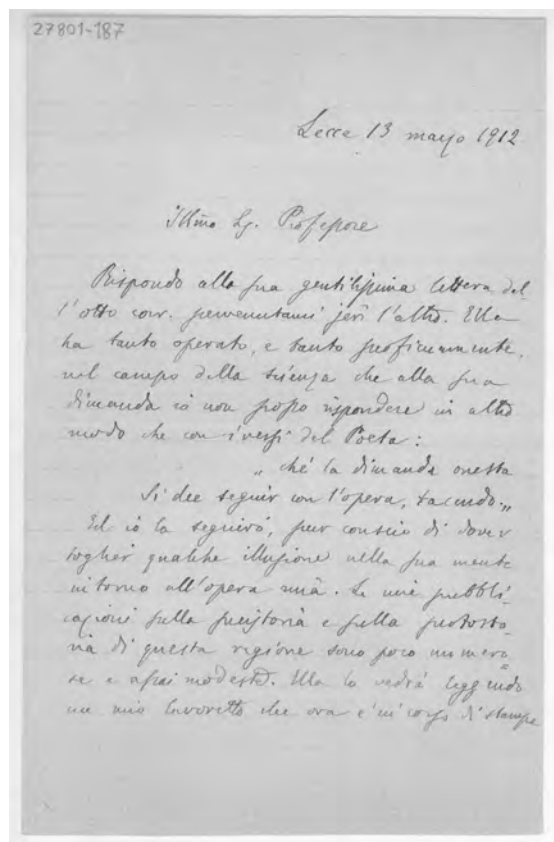 27801-187
Lecce 13 marzo 1912
Illmo Sg. Professore
Rispondo alla sua gentilissima lettera del
l'otto corr. pervenutami jeri l'altro. Ella
ha tanto operato, e tanto proficuamente,
nel campo della scienza che alla sua
dimanda io non posso rispondere in altro
modo che con i versi del Poeta:
„ ché la dimanda onesta
Si dee seguir con l'opera, tacendo.„
Ed io la seguirò, pur conscio di dover
togliere qualche illusione nella sua mente
intorno all'opera mia. Le mie pubbli-
cazioni sulla preistoria e sulla protosto-
ria di questa regione sono poco numero-
se e assai modeste. Ella lo vedrà leggendo
un mio lavoretto che ora è in corso di stampa